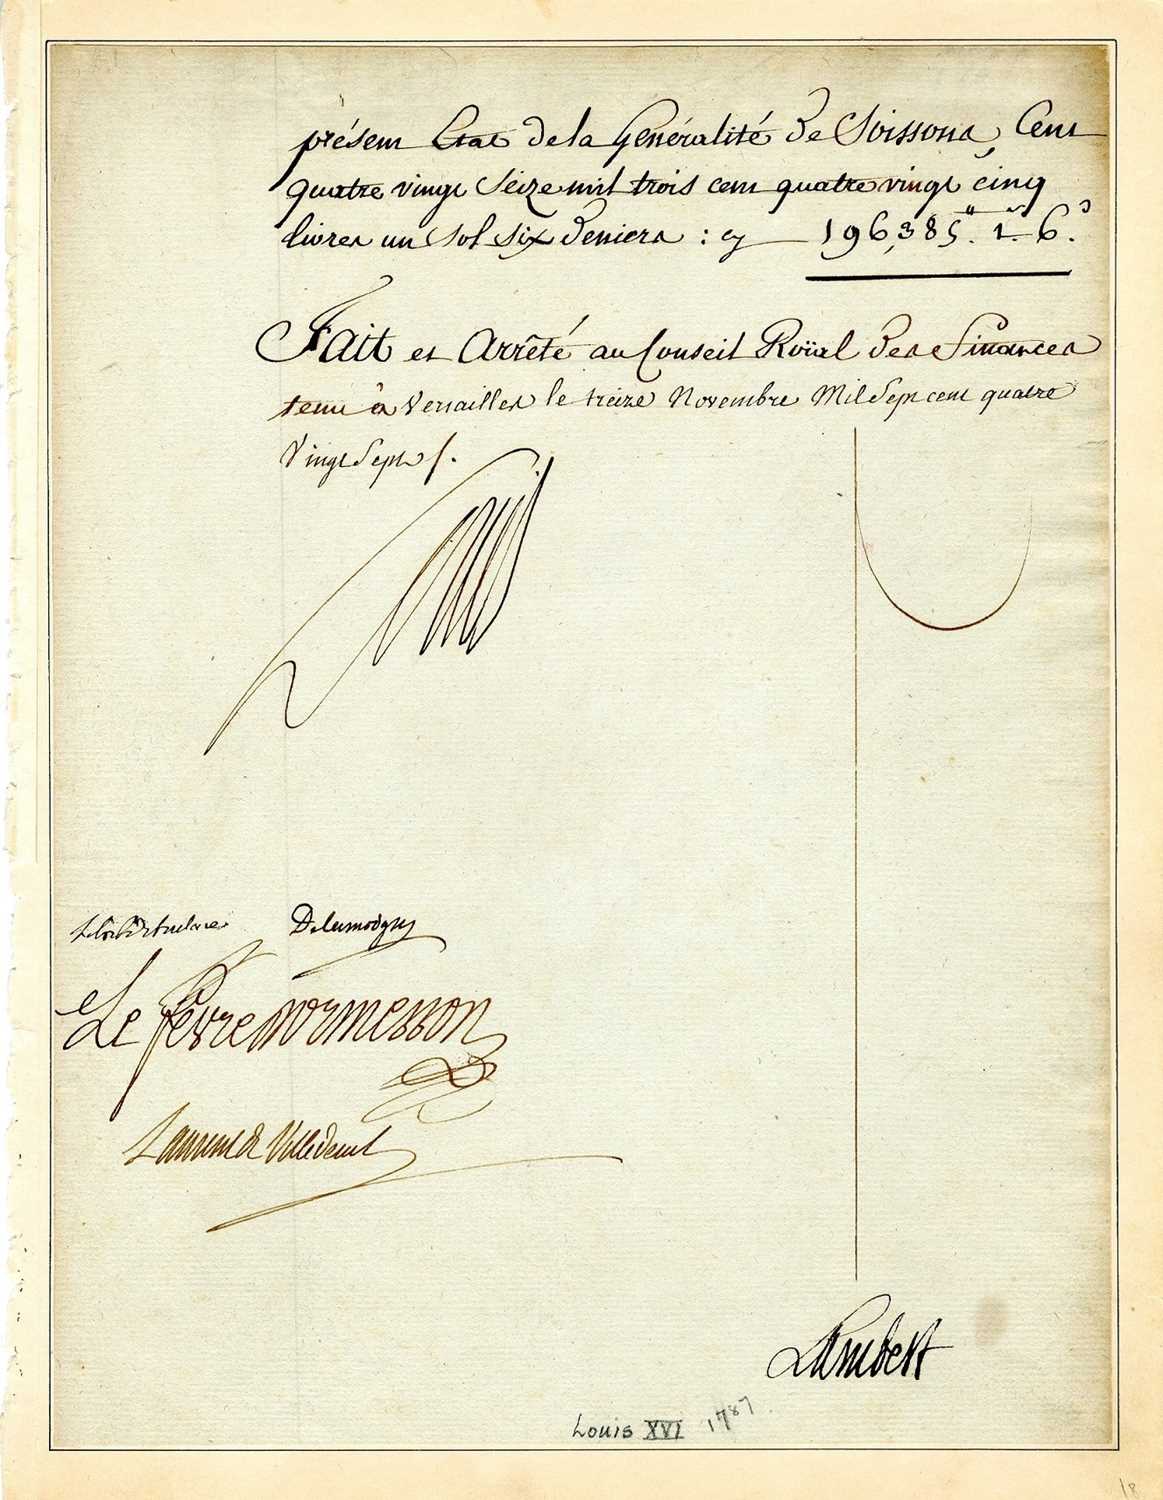 présent Etat de la Généralité de Soissons, Cent
quatre vingt Seize mil trois cent quatre vingt cinq
livres un Sol Six Deniers : cy 196,385ᵗᵗ. 1ˢ. 6ᵈ.
Fait et Arrêté au Conseil Roïal des Finances
tenu à Versailles le treize Novembre Mil Sept cent quatre
Vingt Sept /.
Louis
Delamoignon
Le fevre dormesson
Laurent de Villedeuil
Lambert
Louis XVI 1787
18